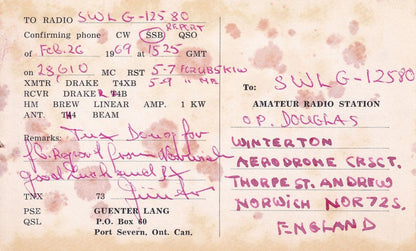 TO RADIO SWL G-12580
REPORT
Confirming phone CW SSB QSO
of Feb. 26 1969 at 1525 GMT
on 28610 MC RST 5-7 FOR UB5KIW
XMTR DRAKE T4XB 5-9 " ME
RCVR DRAKE R4B
HM BREW LINEAR AMP. 1 KW
ANT. TH4 BEAM
Remarks: Tnx Doug for
report from
good luck
TNX 73 Jim for
PSE GUENTER LANG
QSL P.O. Box 60
Port Severn, Ont. Can.
To: SWL G-12580
AMATEUR RADIO STATION
O.P. DOUGLAS
WINTERTON
AERODROME CRSCT.
THORPE ST. ANDREW
NORWICH NOR72S.
ENGLAND